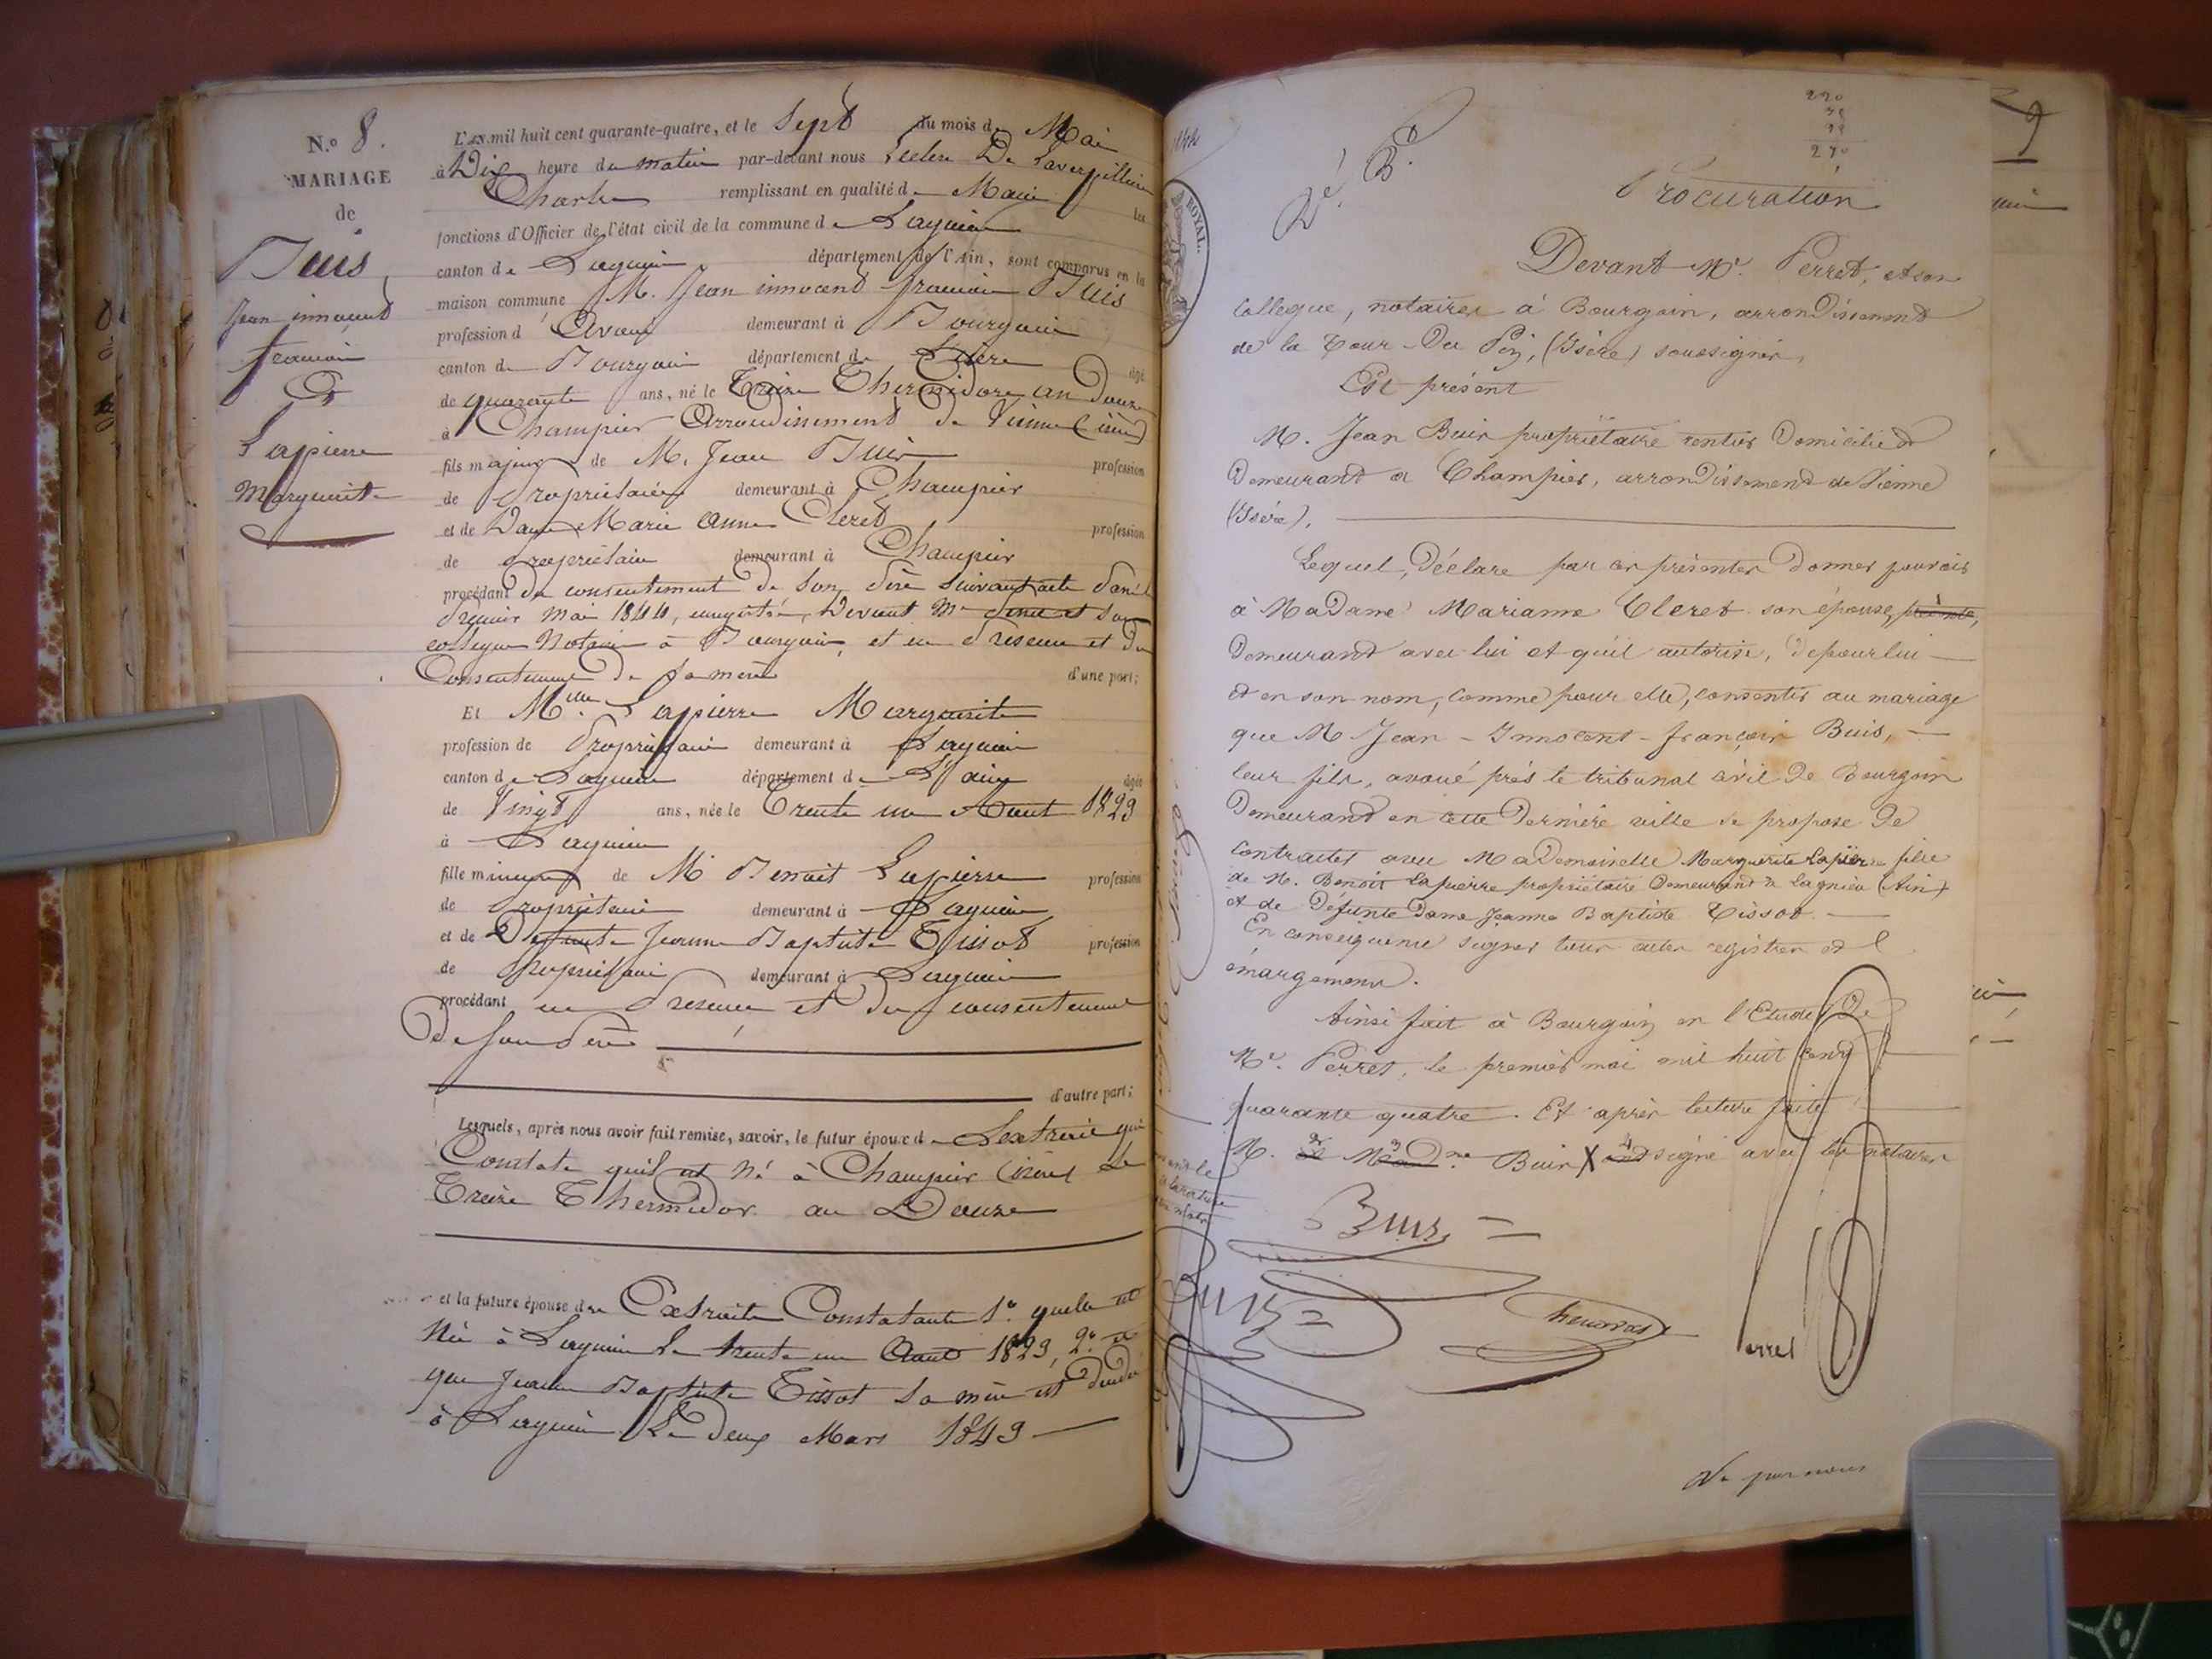 N.o 8.
MARIAGE
de
Buis
Jean innocent
francois
Et
Lapierre
Marguerite
L'AN mil huit cent quarante-quatre, et le Sept du mois de Mai
à Dix heure du matin par-devant nous Leclerc De Laverpillière
Charles remplissant en qualité de Maire les
fonctions d'Officier de l'état civil de la commune de Lagnieu
canton de Lagnieu département de l'Ain, sont comparus en la
maison commune M. Jean innocent francois Buis
profession d'Avoué demeurant à Bourgoin
canton de Bourgoin département de L'isère âgé
de quarante ans, né le Treize Thermidore an Douze
à Champier Arrondissement de Vienne (isère)
fils majeur de M. Jean Buis profession
de Propriétaire demeurant à Champier
et de Dame Marie anne Cleret profession
de Propriétaire demeurant à Champier
procédant du consentement de son père suivant acte
premier mai 1844, enregistré, Devant Me et son
collegue Notaire à Bourgoin, et en présence et du
Consentement de sa mère d'une part;
Et Melle Lapierre Marguerite
profession de Propriétaire demeurant à Lagnieu
canton de Lagnieu département de L'ain âgée
de Vingt ans, née le Trente un Aout 1823
à Lagnieu
fille mineure de M Benoit Lapierre profession
de Propriétaire demeurant à Lagnieu
et de Defunte Jeanne Baptiste Tissot profession
de Propriétaire demeurant à Lagnieu
procédant en Présence et du consentement
de son Père
d'autre part;
Lesquels, après nous avoir fait remise, savoir, le futur époux de L'extrait qui
Constate quil est Né à Champier (isère) le
Treize Thermidor an Douze
et la future épouse des Extraits Constatants 1o quelle est
Née à Lagnieu le trente un Aout 1823, 2o
que Jeanne Baptiste Tissot sa mère est décédée
à Lagnieu Le deux Mars 1843
220
270
ROYAL.
Procuration
Devant Me. Perret, et son
collegue, notaires à Bourgoin, arrondissement
de la Tour Du Pin, (Isère) soussignés,
Est présent
M. Jean Buis propriétaire rentier Domicilié et
Demeurant à Champier, arrondissement de Vienne
(Isère),
Lequel, Déclare par ces présentes Donner pouvoir
à Madame Marianne Cleret son épouse, présente,
Demeurant avec lui et qu'il autorise, de pour lui
et en son nom, comme pour elle, consentir au mariage
que M Jean - Innocent - françois Buis,
leur fils, avoué près le tribunal civil de Bourgoin
Demeurant en cette Dernière ville se propose De
contracter avec MaDemoiselle Marguerite Lapierre fille
de M. Benoit Lapierre propriétaire Demeurant à Lagnieu (Ain)
et de Défunte Dame Jeanne Baptiste Tissot.
En conséquence signer tous actes registres et
émargemens.
Ainsi fait à Bourgoin en l'Etude De
Me. Perret, le premier mai mil huit cent
quarante quatre. Et après lecture faite
M. et Madme Buis X ont signé avec les notaires
Buis
Perret
Vu par nous